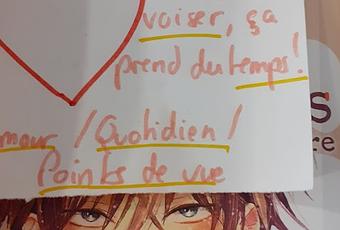 voiser, ça
prend du temps!
mour / Quotidien /
Points de vue
s
re